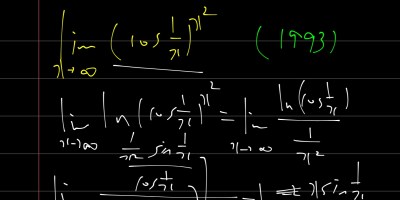 lim x→∞ (cos 1/x)^x² (1993)
lim x→∞ ln(cos 1/x)^x² = lim x→∞ ln(cos 1/x) / (1/x²)
1/x² sin 1/x
lim cos 1/x x sin 1/x